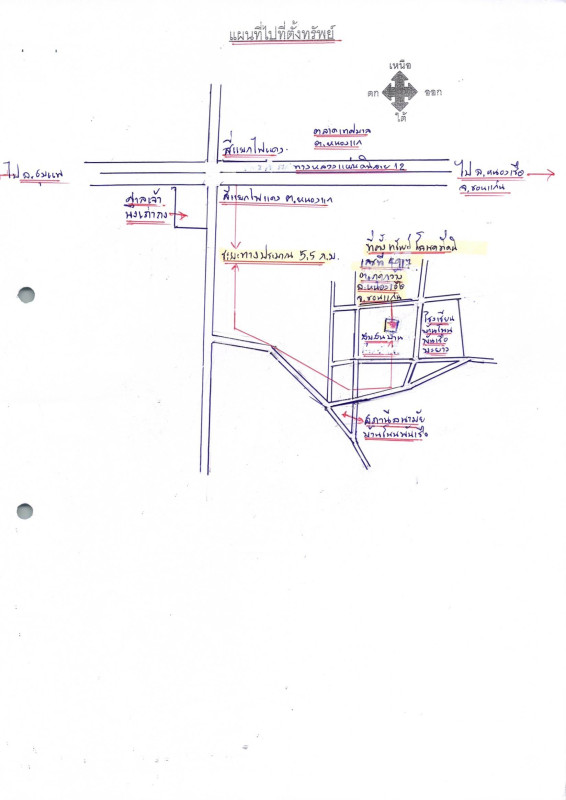 แผนที่ไปที่ตั้งทรัพย์
เหนือ
ตก
ออก
ใต้
ตลาดเทศบาล
ต.หนองแก
สี่แยกไฟแดง
ทางหลวงแผ่นดินสาย 12
ไป อ.ชุมแพ
ไป อ.หนองเรือ
จ.ขอนแก่น
ศาลเจ้า
สี่แยกไฟแดง ต.หนองแก
ที่ตั้งทรัพย์โฉนดที่ดิน
ระยะทางประมาณ 5.5 ก.ม.
เลขที่
อ.หนองเรือ
จ.ขอนแก่น
โรงเรียน
บ้านโนน
สถานีอนามัย